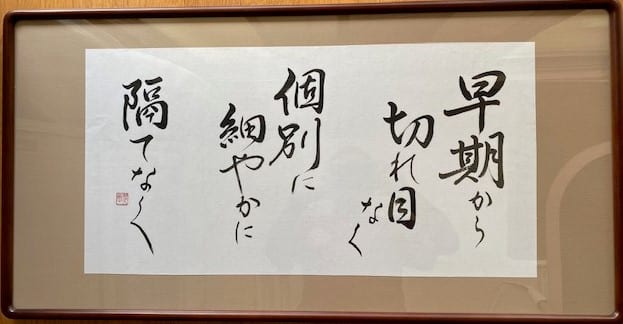 早期から
切れ目
なく
個別に
細やかに
隔てなく